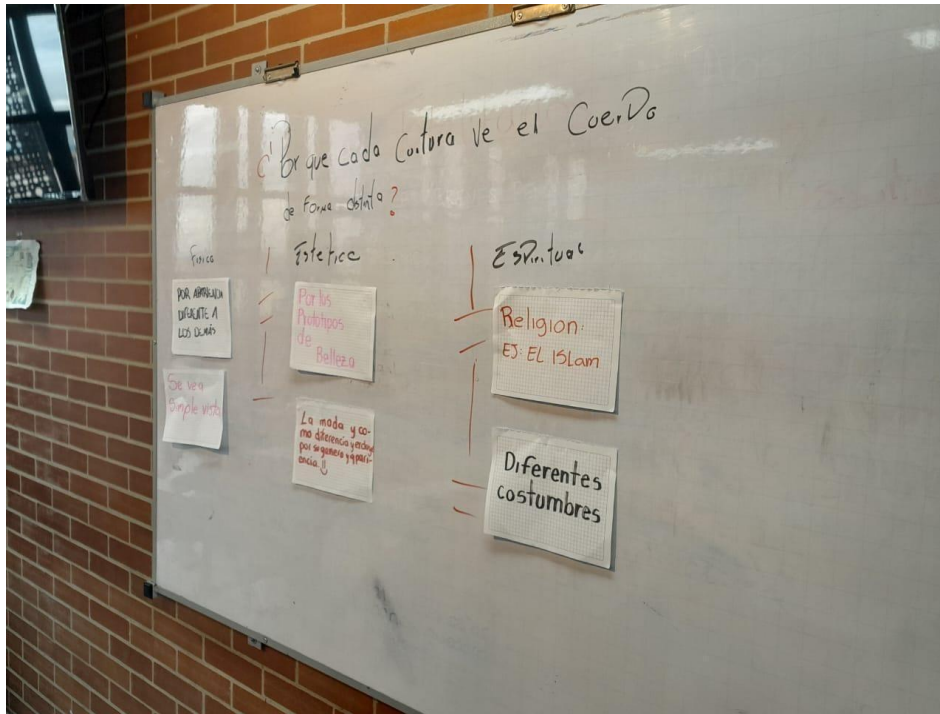 ¿Por que cada Cultura ve el CuerPo
de Forma distinta?
Fisica
POR APARIENCIA
DIFERENTE A
LOS DEMÁS
Se ve a
Simple vista
Estetica
Por los
Prototipos
de
Belleza
La moda y co-
mo diferencia y excluye
por su genero y apari-
encia !!
ESPiritual
Religion:
EJ: EL ISLam
Diferentes
costumbres